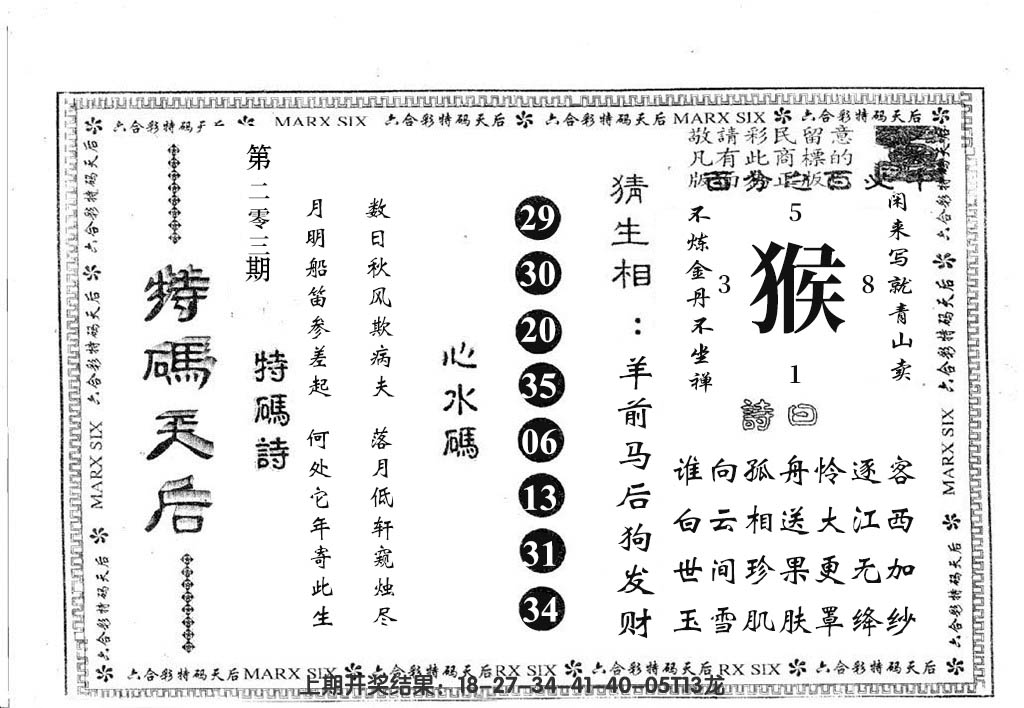 六合彩特码天后 MARX SIX 六合彩特码天后 六合彩特码天后 MARX SIX 六合彩特码天后
特碼天后
第二零三期
特碼詩
数日秋风欺病夫 落月低轩窥烛尽
月明船笛参差起 何处它年寄此生
心水碼
29
30
20
35
06
13
31
34
猜生相:羊前马后狗发财
敬請彩民留意
凡有此商標的
版面为正版
不炼金丹不坐禅
闲来写就青山卖
5
3
猴
8
1
詩曰
谁向孤舟怜逐客
白云相送大江西
世间珍果更无加
玉雪肌肤罩绛纱
六合彩特码天后 MARX SIX 六合彩特码天后
六合彩特码天后 MARX SIX 六合彩特码天后
六合彩特码天后 MARX SIX 六合彩特码天后 RX SIX 六合彩特码天后 RX SIX 六合彩特码天后
上期开奖结果:18-27-34-41-40-05T13龙